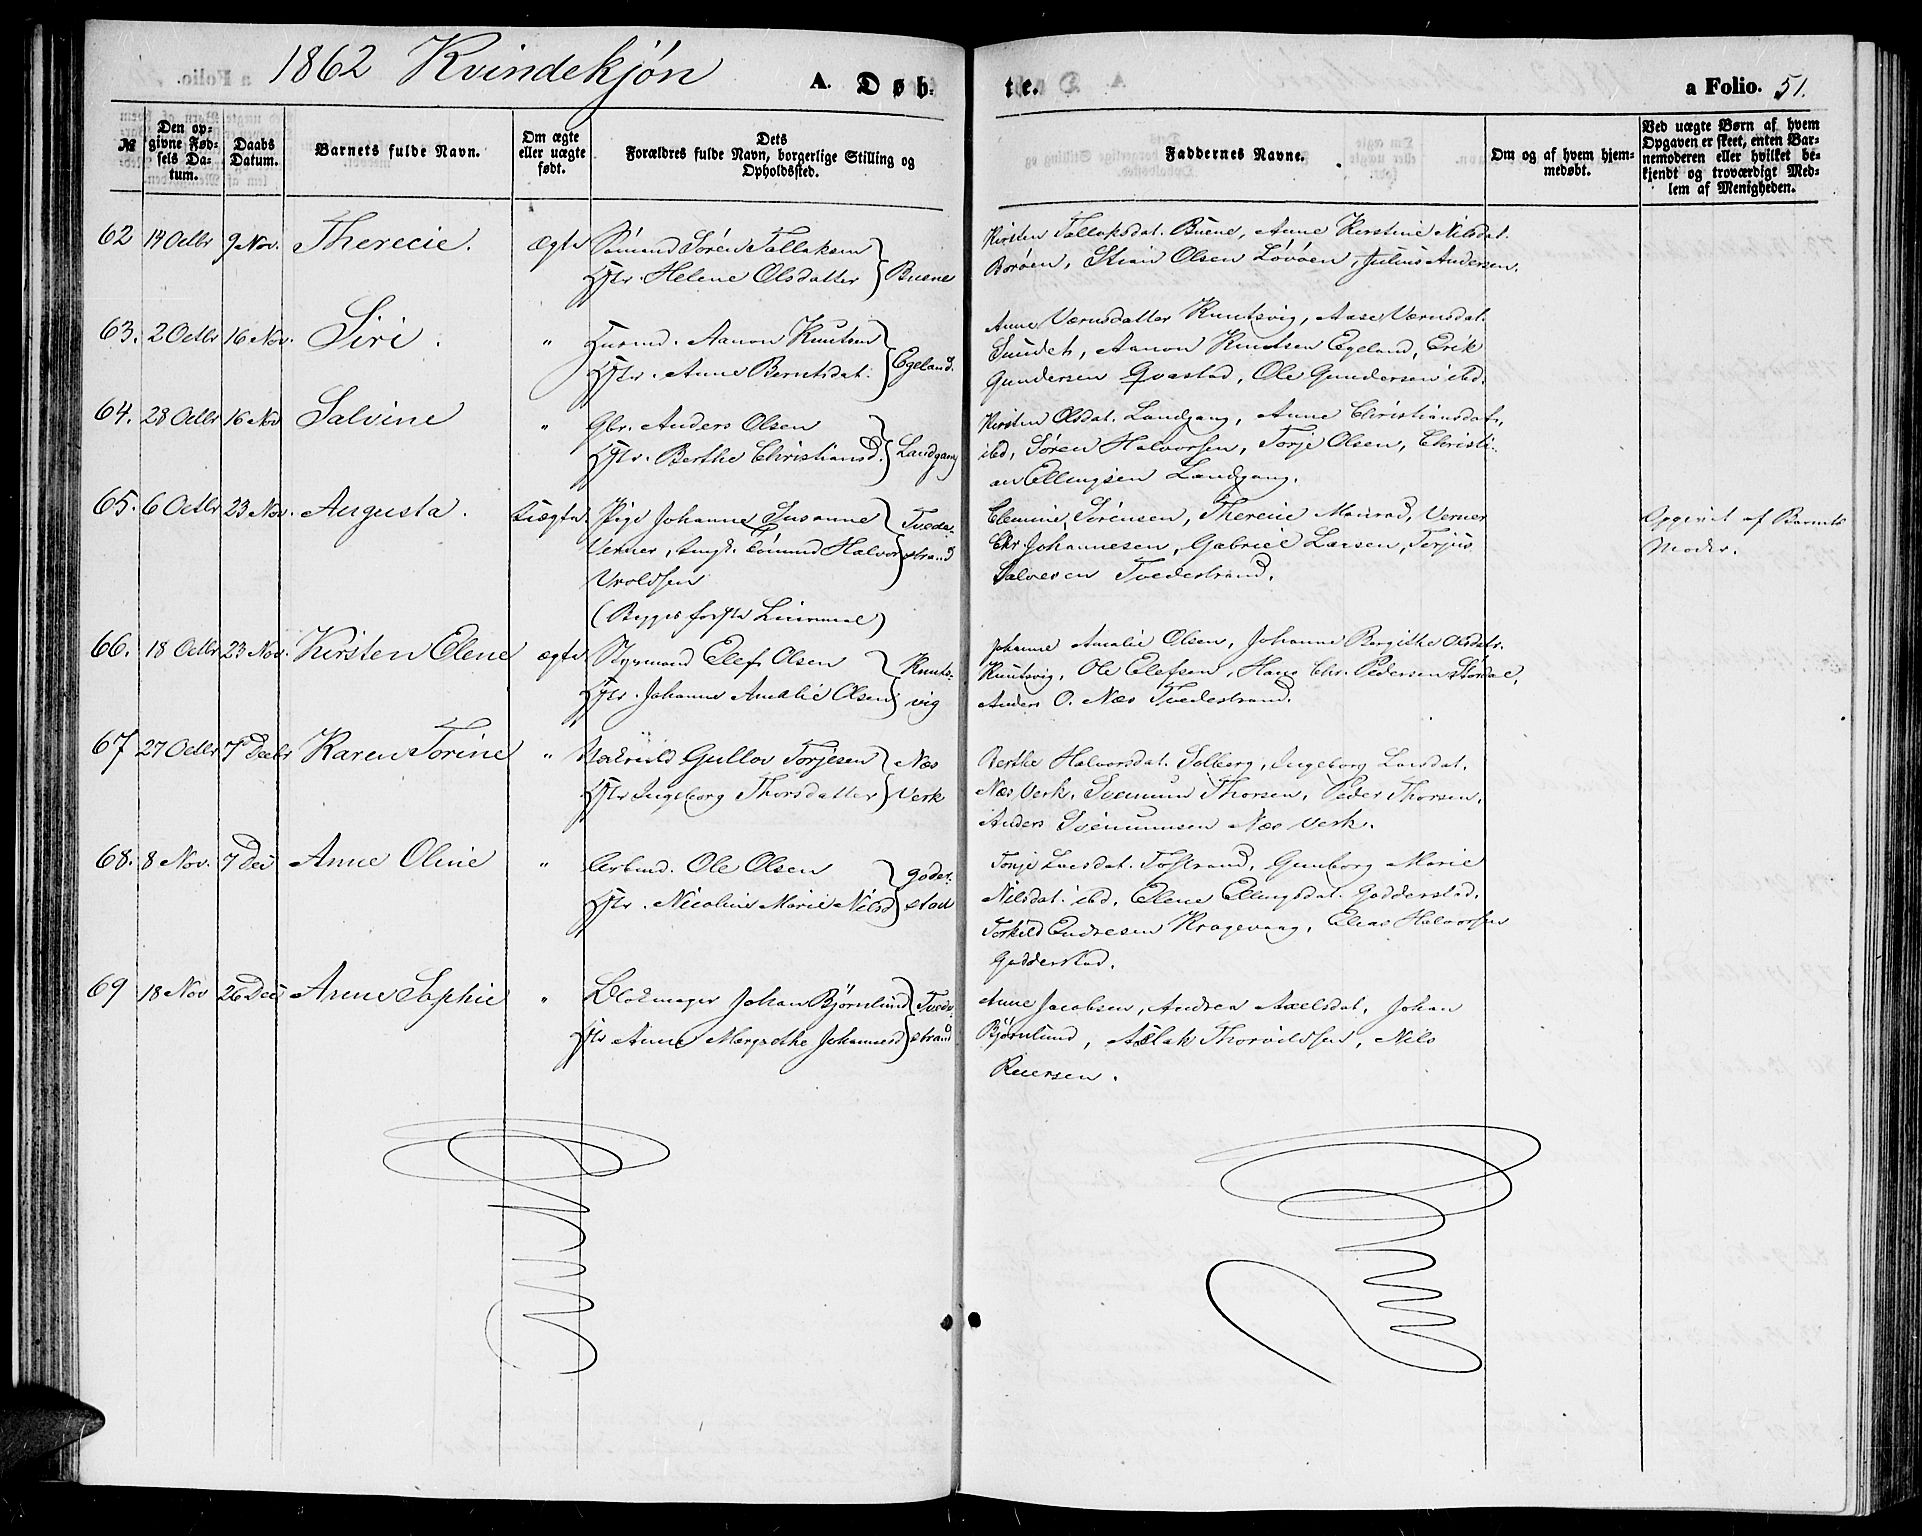 1862 Kvindekjön
A. Døbte.
a Folio. 51.
№
Den opgivne Fødsels Datum.
Daabs Datum.
Barnets fulde Navn.
Om ægte eller uægte født.
Dets Forældres fulde Navn, borgerlige Stilling og Opholdssted.
Faddernes Navne.
Om og af hvem hjemmedøbt.
Ved uægte Børn af hvem Opgaven er skeet, enten Barnemoderen eller hvilket bekjendt og troværdigt Medlem af Menigheden.
62 14 Octbr 9 Nov. Therecie. ægte Sömand Sören Tallaksen
Hstr. Helene Olsdatter Buene
Kirsten Tallaksdat. Buene, Anne Kirstine Nilsdat.
Boröen, Stian Olsen Lövöen, Julius Andersen.
63. 2 Octbr 16 Nov. Siri. " Husmd. Aanon Knutsen
Hstr. Anne Berntsdat. Egeland.
Anne Værnsdatter Knutsvig, Aase Værnsdat.
Sundet, Aanon Knutsen Egeland, Erik
Gundersen Qvastad, Ole Gundersen ibd.
64. 28 Octbr 16 Nov Salvine " Gbr. Anders Olsen
Hstr. Berthe Christiansd. Landgang
Kirsten Olsdat. Landgang, Anne Christiansdatr.
ibd, Sören Halvorsen, Torje Olsen, Christi-
an Ellingsen Landgang.
65. 6 Octbr 23 Nov. Augusta. Uægte Pige Johanne Susanne
Verner, Ungk. Sömnd Halvor
Vroldsen
(Begges første Leiermaal)
Tvede-
strand
Clemine Sörensen, Therecie Monrad, Verner
Chr Johannesen, Gabriel Larsen, Terjus
Salvesen Tvedestrand.
Opgivet af Barnets
Moder.
66. 18 Octbr 23 Nov. Kirsten Elene ægte Styrmand Elef Olsen
Hstr. Johanne Amalie Olsen Knuts-
vig
Johanne Amalie Olsen, Johanne Bergithe Olsdatr.
Knutsvig, Ole Elefsen, Hans Chr. Pedersen Stordal,
Anders O. Næs Tvedestrand.
67 27 Octbr 7 Decbr Karen Torine " Gullov Torjesen
Hstr Ingeborg Thorsdatter Næs
Verk
Berthe Halvorsdat. Solberg, Ingeborg Larsdat.
Næs Verk, Svenum Thorsen, Peder Thorsen,
Anders Svenumsen Næs Verk.
68. 8 Nov. 7 Dec Anne Oline " Arbmd. Ole Olsen
Hstr. Nicoline Marie Nilsd Goder-
stad
Tonje Larsdat. Tostrand, Gunborg Marie
Nilsdat. ibd, Elene Ellingsdat. Godderstad,
Terkild Endresen Kragevaag, Elias Halvorsen
Godderstad.
69 18 Nov 26 Dec Anne Sophie " Blokmager Johan Björnlund
Hstr Anne Margrethe Johannesd Tvede-
strand
Anne Jacobsen, Andrea Axelsdat, Johan
Björnlund, Aslak Thorvildsen, Nils
Reiersen.